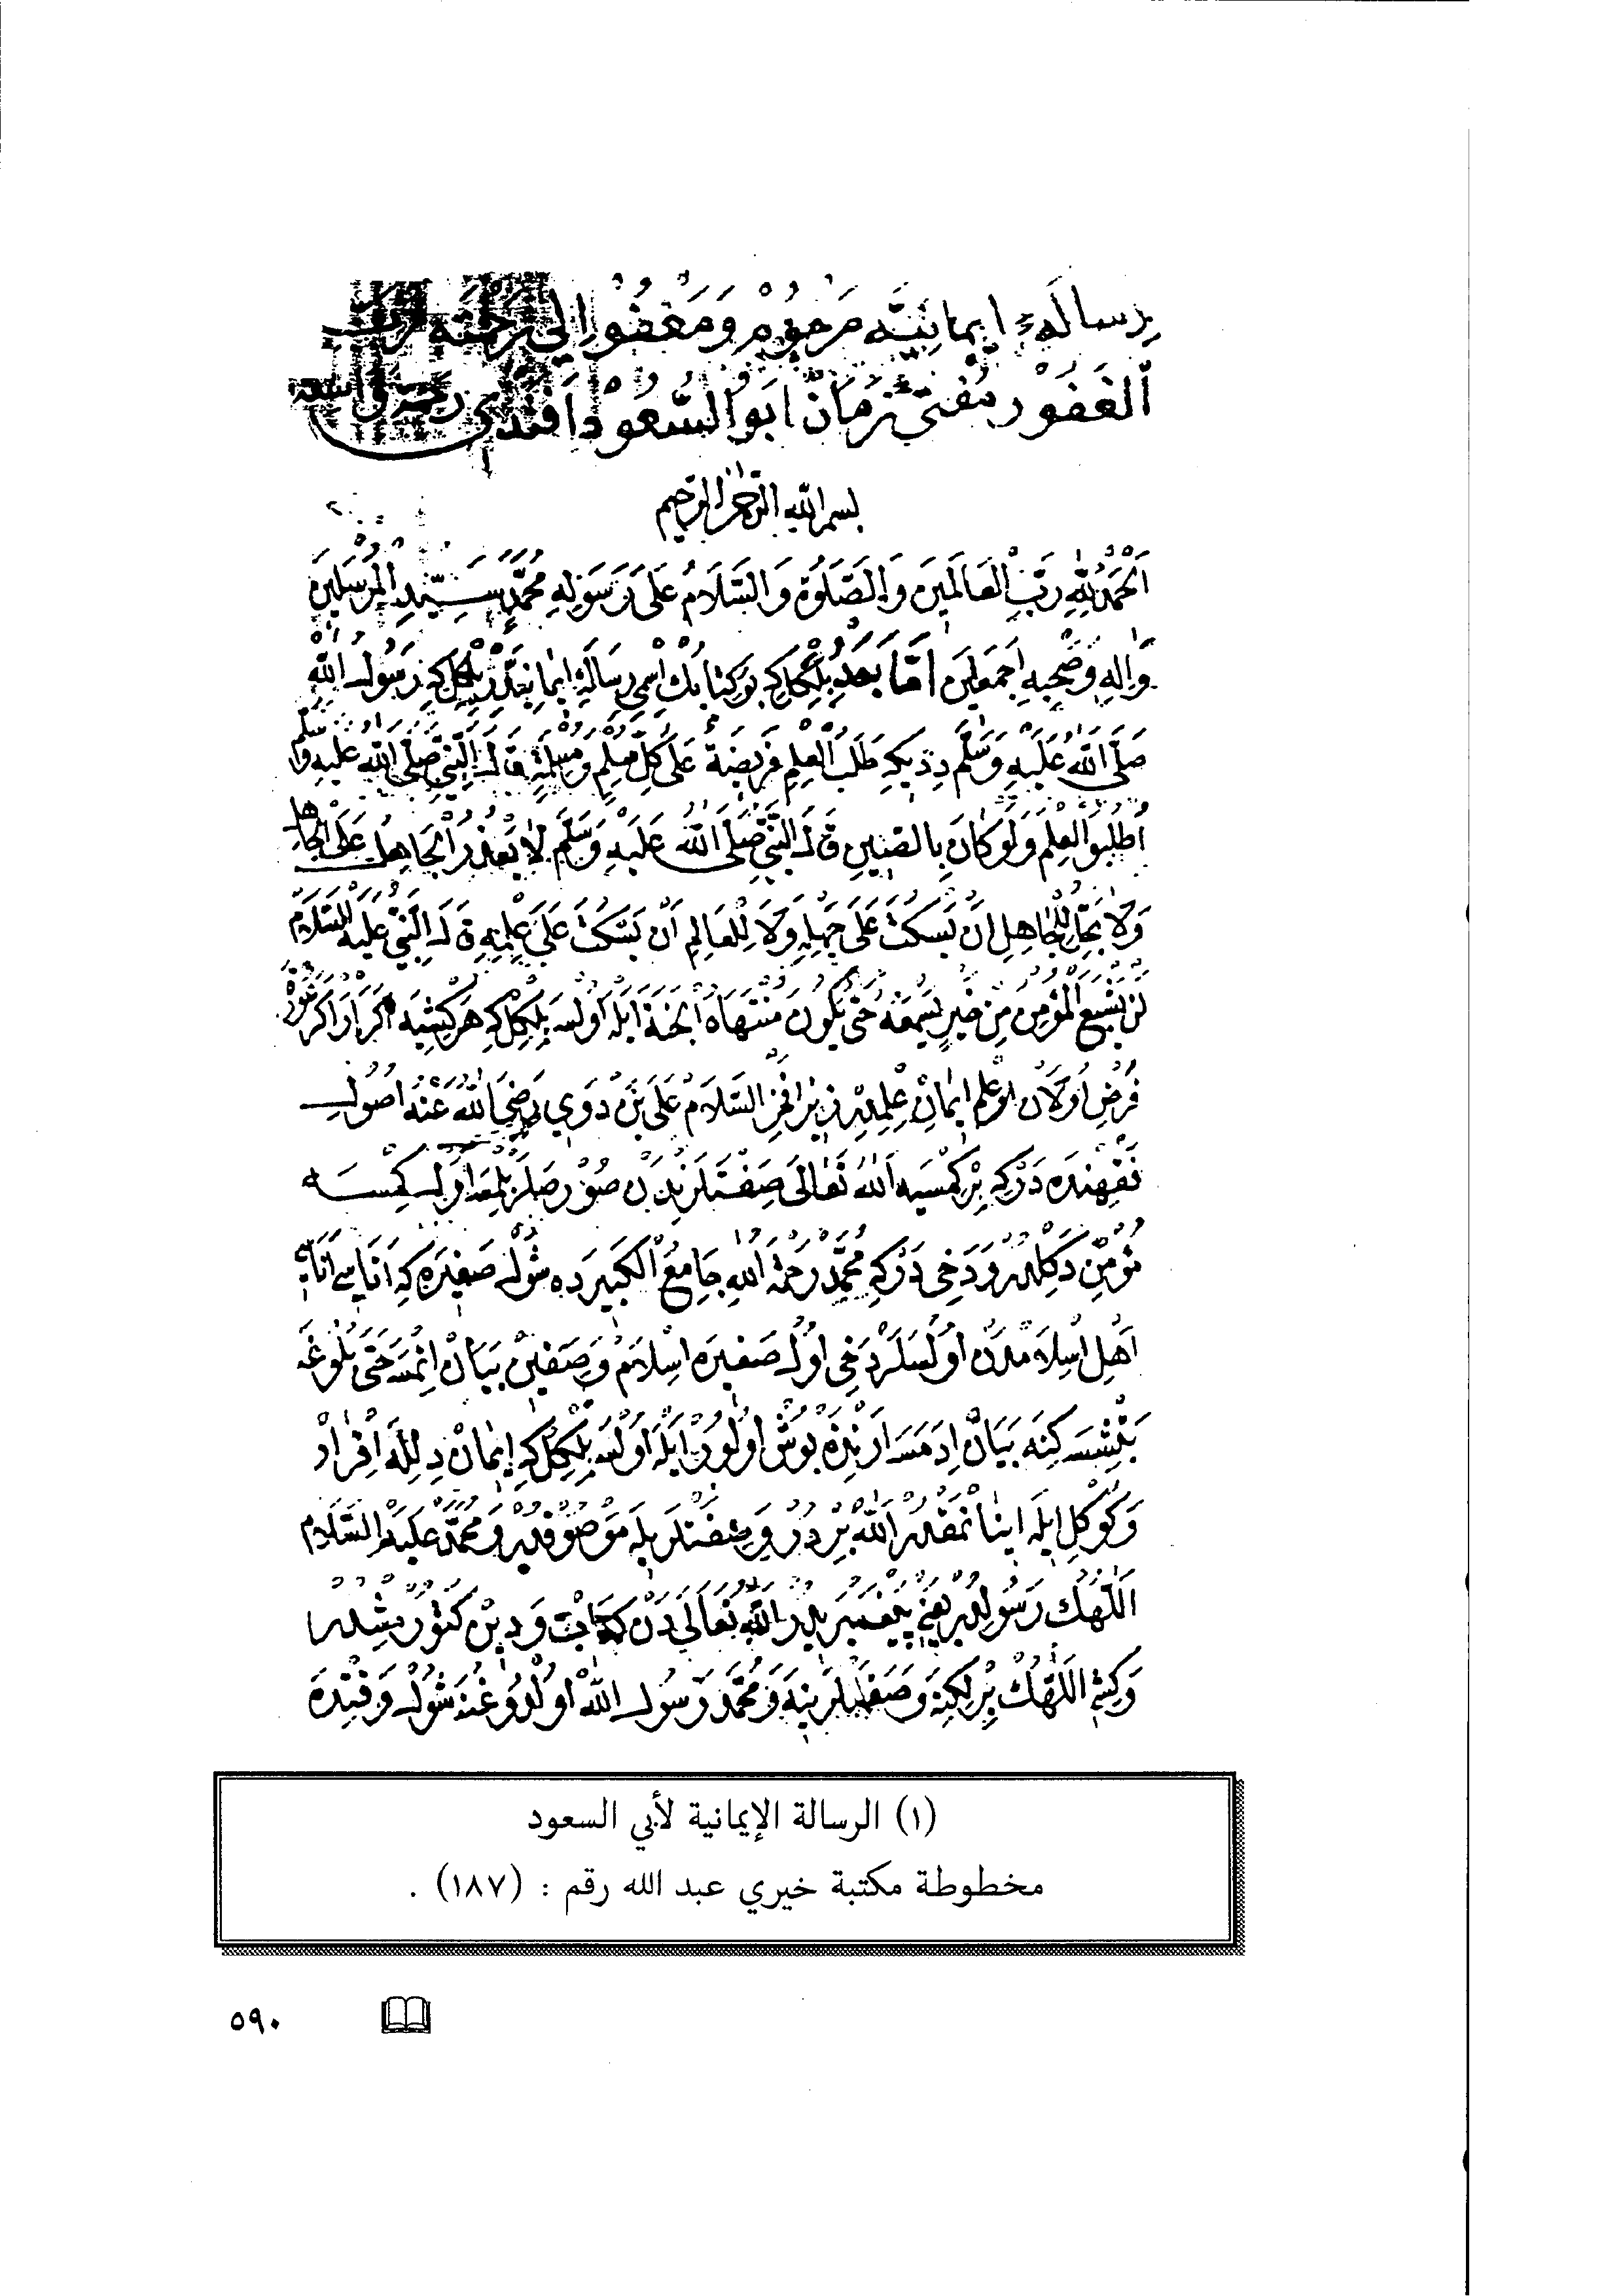 رِسَالَهٔ اِيمَانِيَّه مَرْحُومْ وَمَغْفُوْر اِلٰى رَحْمَةِ رَبِّ
اَلْغَفُوْر مُفْتِىٔ زَمَانْ اَبُو السُّعُوْد اَفَنْدِى رحمة الله
بسم الله الرحمن الرحيم
اَلْحَمْدُ لِلّٰهِ رَبِّ الْعَالَمِينَ وَالصَّلٰوةُ وَالسَّلَامُ عَلَى رَسُولِهِ مُحَمَّدٍ سَيِّدِ الْمُرْسَلِينَ
وَاٰلِهِ وَصَحْبِهِ اَجْمَعِينَ اَمَّا بَعْدُ بِلْكِلْ كِه بُو كِتَابُكْ اِسْمِى رِسَالَهٔ اِيمَانِيَّهْدِرْ بِلْكِلْ كِه رَسُولُ اللّٰهِ
صَلَّى اللّٰهُ عَلَيْهِ وَسَلَّمَ دِدِى كِه طَلَبُ الْعِلْمِ فَرِيضَةٌ عَلَى كُلِّ مُسْلِمٍ وَمُسْلِمَةٍ قَالَ النَّبِىُّ صَلَّى اللّٰهُ عَلَيْهِ وَسَلَّمَ
اُطْلُبُوا الْعِلْمَ وَلَوْ كَانَ بِالصِّينِ قَالَ النَّبِىُّ صَلَّى اللّٰهُ عَلَيْهِ وَسَلَّمَ لَا يُعْذَرُ الْجَاهِلُ عَلَى الْجَهْلِ
وَلَا يَحِلُّ لِلْجَاهِلِ اَنْ يَسْكُتَ عَلَى جَهْلِهِ وَلَا لِلْعَالِمِ اَنْ يَسْكُتَ عَلَى عِلْمِهِ قَالَ النَّبِىُّ عَلَيْهِ السَّلَامُ
لَنْ يَشْبَعَ الْمُؤْمِنُ مِنْ خَيْرٍ يَسْمَعُهُ حَتَّى يَكُونَ مُنْتَهَاهُ الْجَنَّةَ اَيْلَه اُولْسَه بِلْكِلْ كِه هَرْ كِشِيَه اَكَرْ اَرْ اَكَرْ عَوْرَتْ
فَرْضْ اُولَانْ اَوَّلْ عِلْمِ اِيمَانْ عِلْمِيدِرْ زِيرَا فَخْرُ الْاِسْلَامْ عَلِى بَزْدَوِى رَضِىَ اللّٰهُ عَنْهُ اُصُولِ
فِقْهِنْدَه دَرْ كِه بِرْ كِمْسَيَه اَللّٰهُ تَعَالَى صِفَتْلَرِنْدَنْ صُوْرْصَلَرْ بِلْمَسَه اُولْ كِمْسَه
مُؤْمِنْ دَكِلْدِرْ وَدَخِى دَرْ كِه مُحَمَّدْ رَحْمَةُ اللّٰهِ جَامِعُ الْكَبِيرْدَه شُولْ صَغِيرَه كِه اَنَاسِى اَتَاسِى
اَهْلِ اِسْلَامْدَنْ اُولْسَلَرْ دَخِى اُولْ صَغِيرَه اِسْلَامْ وَصْفِينْ بَيَانْ اِتْمَسَه حَتَّى بُلُوغَه
يَتِشْسَه كِنَه بَيَانْ اِدَمَسَه اَرِنْدَنْ بُوشْ اُولُورْ اَيْلَه اُولْسَه بِلْكِلْ كِه اِيمَانْ دِلِلَه اِقْرَارْ
وَكُوكُلْ اِيلَه اِينَانْمَقْدِرْ اَللّٰهْ بِرْدُرْ وَصِفَتْلَرِيلَه مَوْصُوفْدِرْ وَمُحَمَّدْ عَلَيْهِ السَّلَامْ
اَللّٰهُكْ رَسُولِيدِرْ يَعْنِى پَيْغَمْبَرِيدِرْ اَللّٰهُ تَعَالَى دَنْ كِتَابْ وَدِينْ كَتُورْمِشْدِرْ
وَكِتْ اَللّٰهُكْ بِرْلِكِنَه وَصِفَتْلَرِينَه وَمُحَمَّدْ رَسُولُ اللّٰهْ اُولْدُوغِنَه شُولْ وَقْتِدَه
(١) الرسالة الإيمانية لأبي السعود
مخطوطة مكتبة خيري عبد الله رقم : (١٨٧) .
٥٩٠